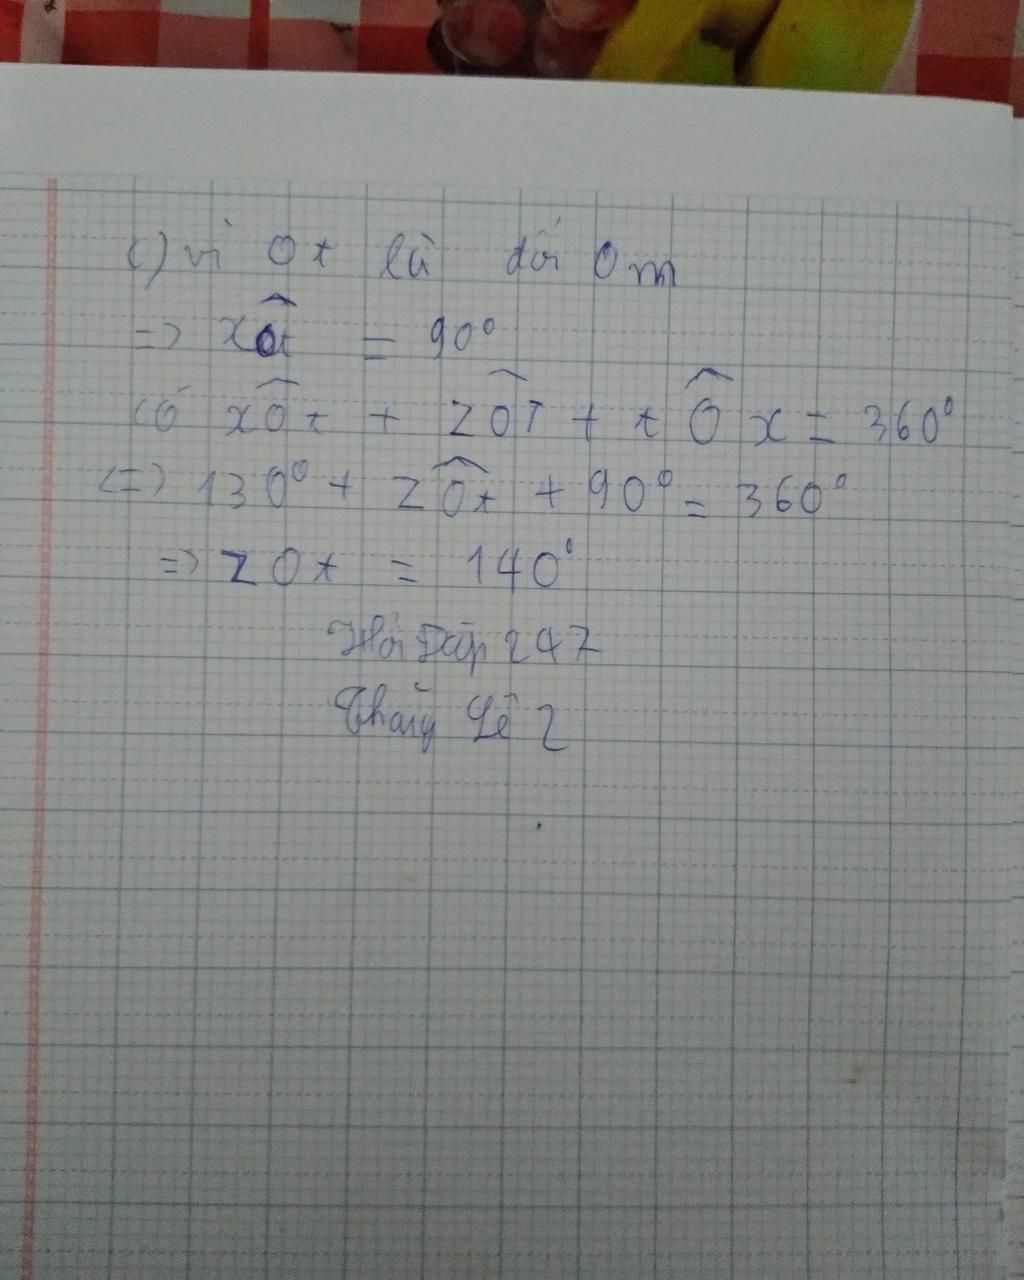 c) vì Ot là đối Om
=> xÔt = 90°
Có xÔt + zÔt + tÔx = 360°
<=> 130° + zÔt + 90° = 360°
=> zOt = 140°
Hỏi Đáp 247
Thắng Lê 2